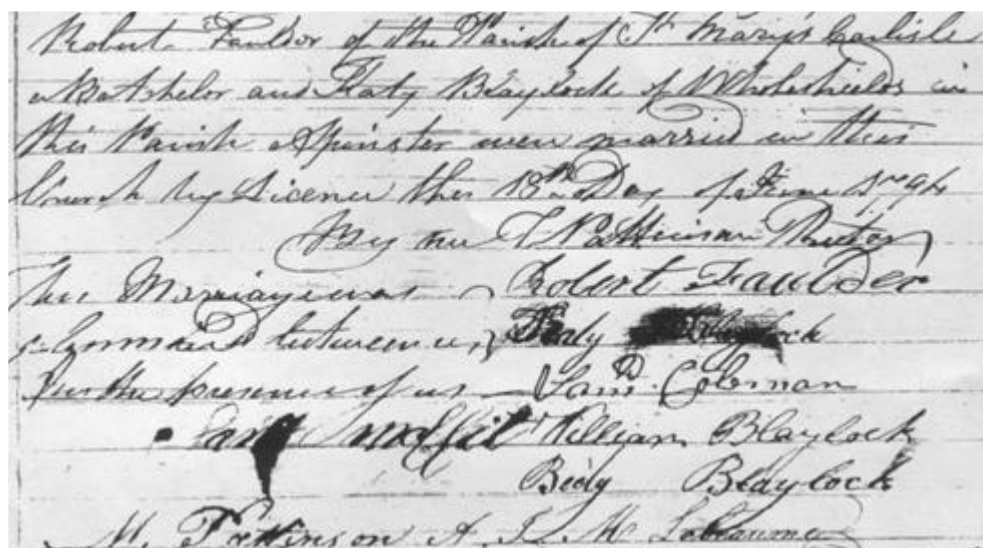 Robert Faulder of the Parish of St Mary's Carlisle
a Batchelor and Katy Blaylock of Wholeshields in
this Parish a Spinster were married in this
Church by Licence this 18th Day of June
By me T Pattinson Rector
This Marriage was Robert Faulder
solemnized between us Blaylock
In the presence of us Saml. Coleman
William Blaylock
Bedy Blaylock